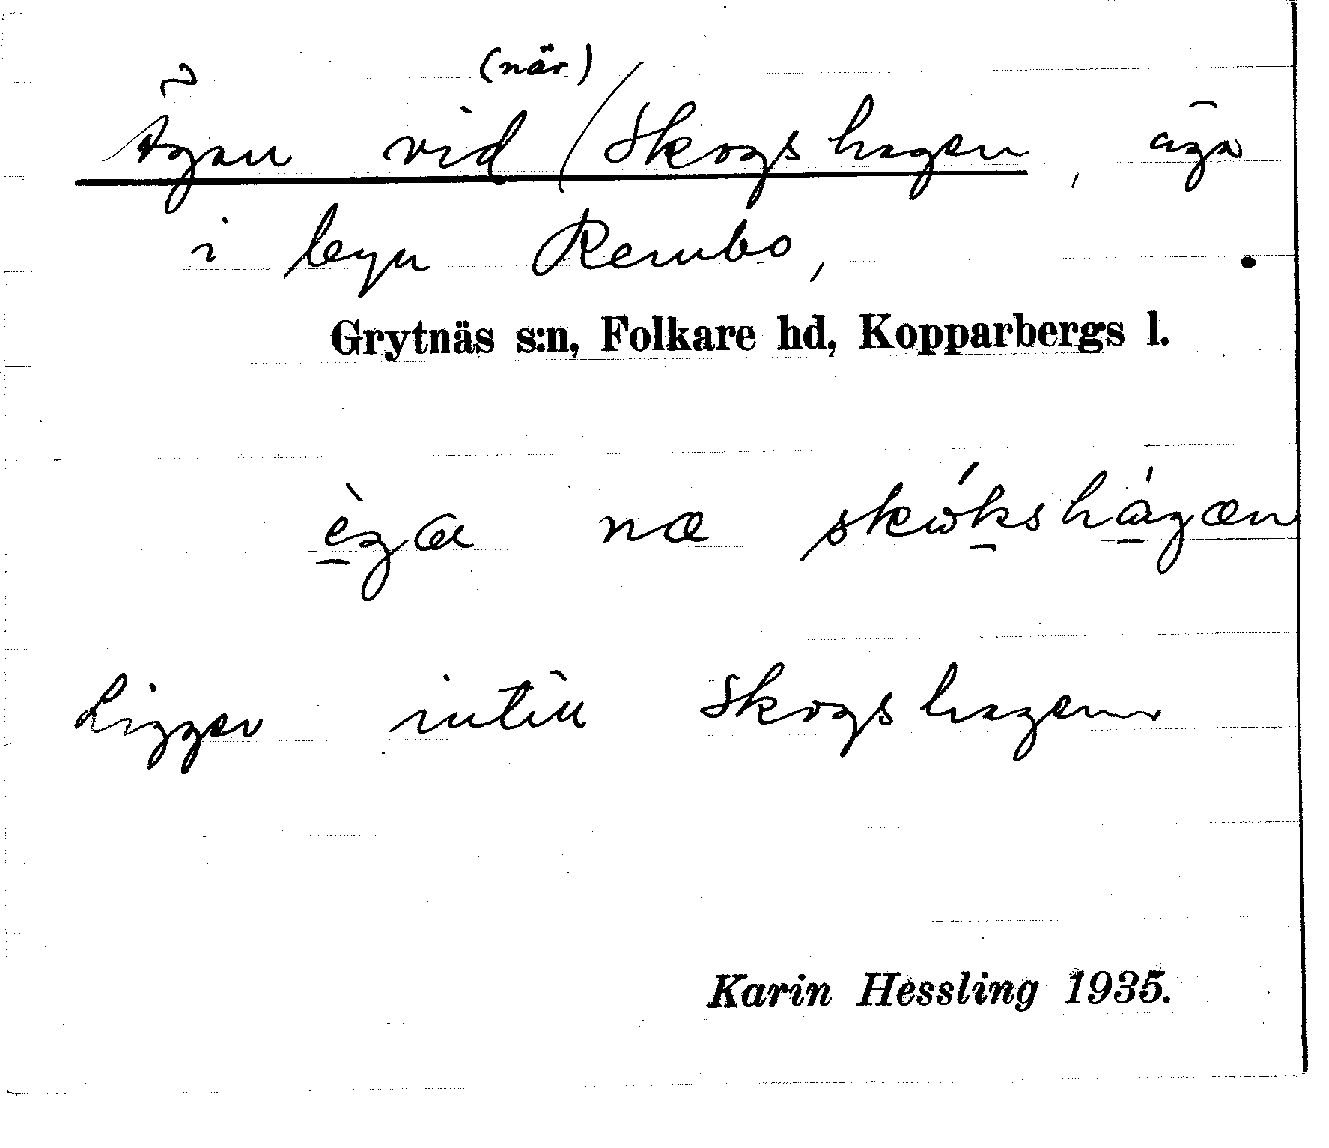 Ägan vid (när) Skogshagen, äga
i byn Rembo,
Grytnäs s:n, Folkare hd, Kopparbergs l.
èga næ skókshàgæn
Ligger intill Skogshagen
Karin Hessling 1935.